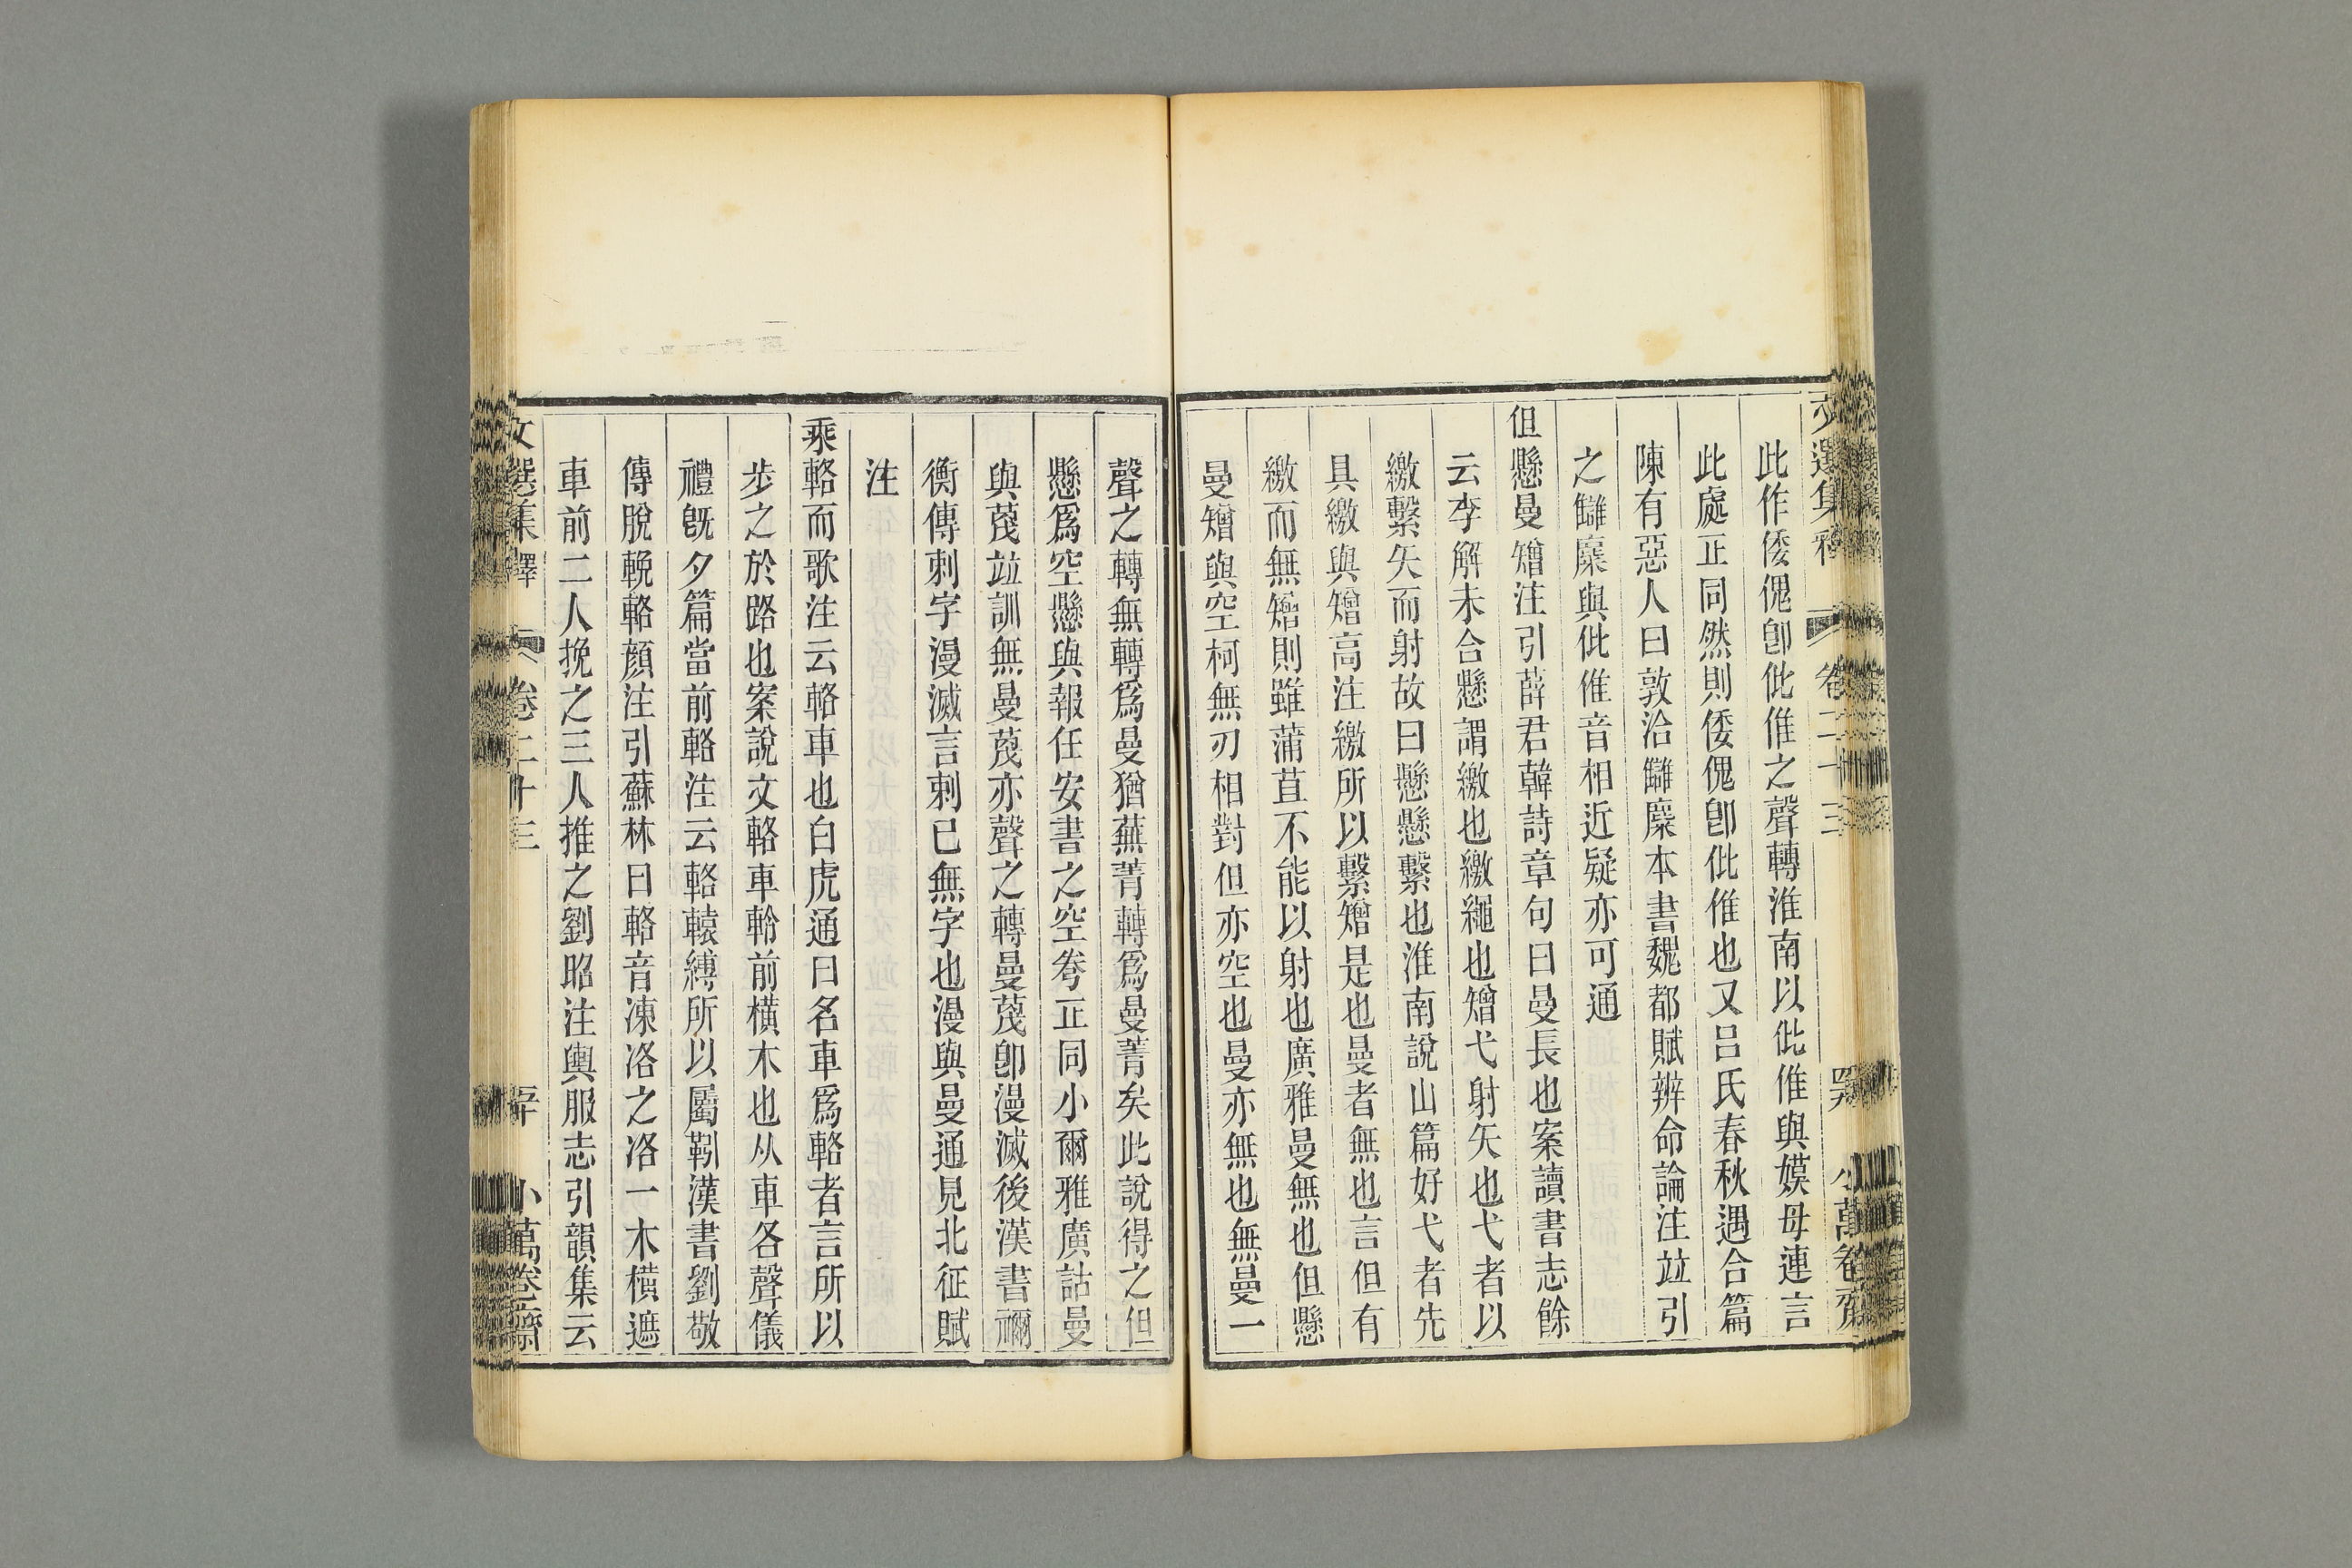 文選集釋 卷二十三 四九 小萬卷齋
此作倭傀卽仳倠之聲轉淮南以仳倠與嫫母連言
此處正同然則倭傀卽仳倠也又呂氏春秋遇合篇
陳有惡人曰敦洽讎麋本書魏都賦辨命論注竝引
之讎麋與仳倠音相近疑亦可通
但懸曼矰注引薛君韓詩章句曰曼長也案讀書志餘
云李解未合懸謂繳也繳繩也矰弋射矢也弋者以
繳繫矢而射故曰懸懸繫也淮南說山篇好弋者先
具繳與矰高注繳所以繫矰是也曼者無也言但有
繳而無矰則雖蒲苴不能以射也廣雅曼無也但懸
曼矰與空柯無刃相對但亦空也曼亦無也無曼一
聲之轉無轉爲曼猶蕪菁轉爲曼菁矣此說得之但
懸爲空懸與報任安書之空弮正同小爾雅廣詁曼
與蔑竝訓無曼蔑亦聲之轉曼蔑卽漫滅後漢書禰
衡傳刺字漫滅言刺已無字也漫與曼通見北征賦
注
乘輅而歌注云輅車也白虎通曰名車爲輅者言所以
步之於路也案說文輅車軨前橫木也从車各聲儀
禮旣夕篇當前輅注云輅轅縛所以屬靷漢書劉敬
傳脫輓輅顏注引蘇林曰輅音凍洛之洛一木橫遮
車前二人挽之三人推之劉昭注輿服志引韻集云
文選集釋 卷二十三 五十 小萬卷齋